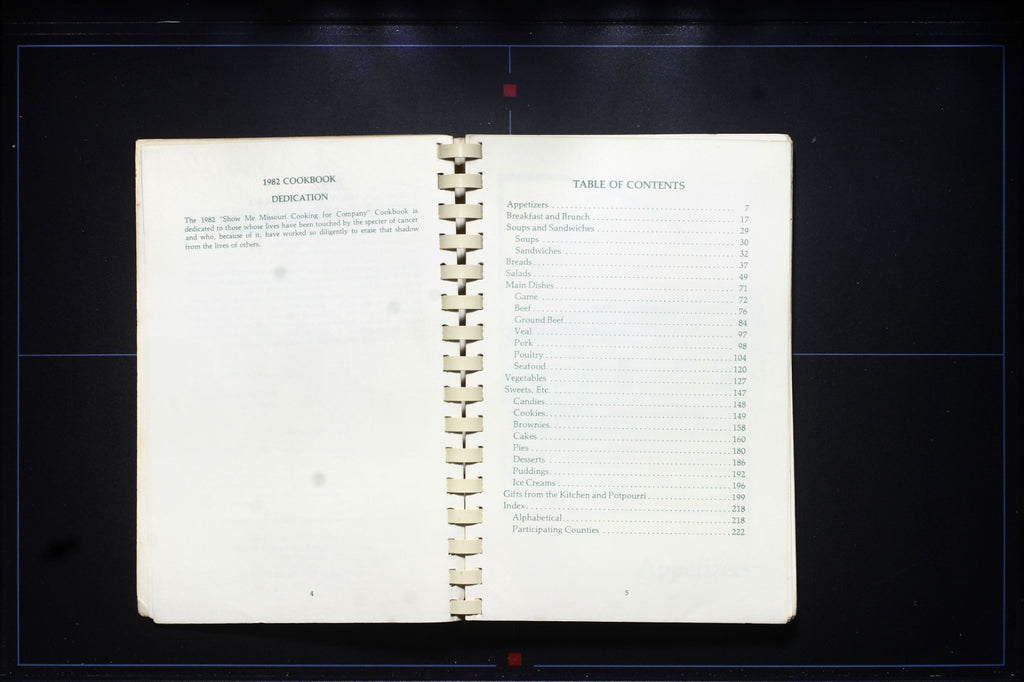 1982 COOKBOOK
DEDICATION
The 1982 "Show Me Missouri Cooking for Company" Cookbook is
dedicated to those whose lives have been touched by the specter of cancer
and who, because of it, have worked so diligently to erase that shadow
from the lives of others.
4
TABLE OF CONTENTS
Appetizers 7
Breakfast and Brunch 17
Soups and Sandwiches 29
Soups 30
Sandwiches 32
Breads 37
Salads 49
Main Dishes 71
Game 72
Beef 76
Ground Beef 84
Veal 97
Pork 98
Poultry 104
Seafood 120
Vegetables 127
Sweets, Etc. 147
Candies 148
Cookies 149
Brownies 158
Cakes 160
Pies 180
Desserts 186
Puddings 192
Ice Creams 196
Gifts from the Kitchen and Potpourri 199
Index 218
Alphabetical 218
Participating Counties 222
Appetizers
5